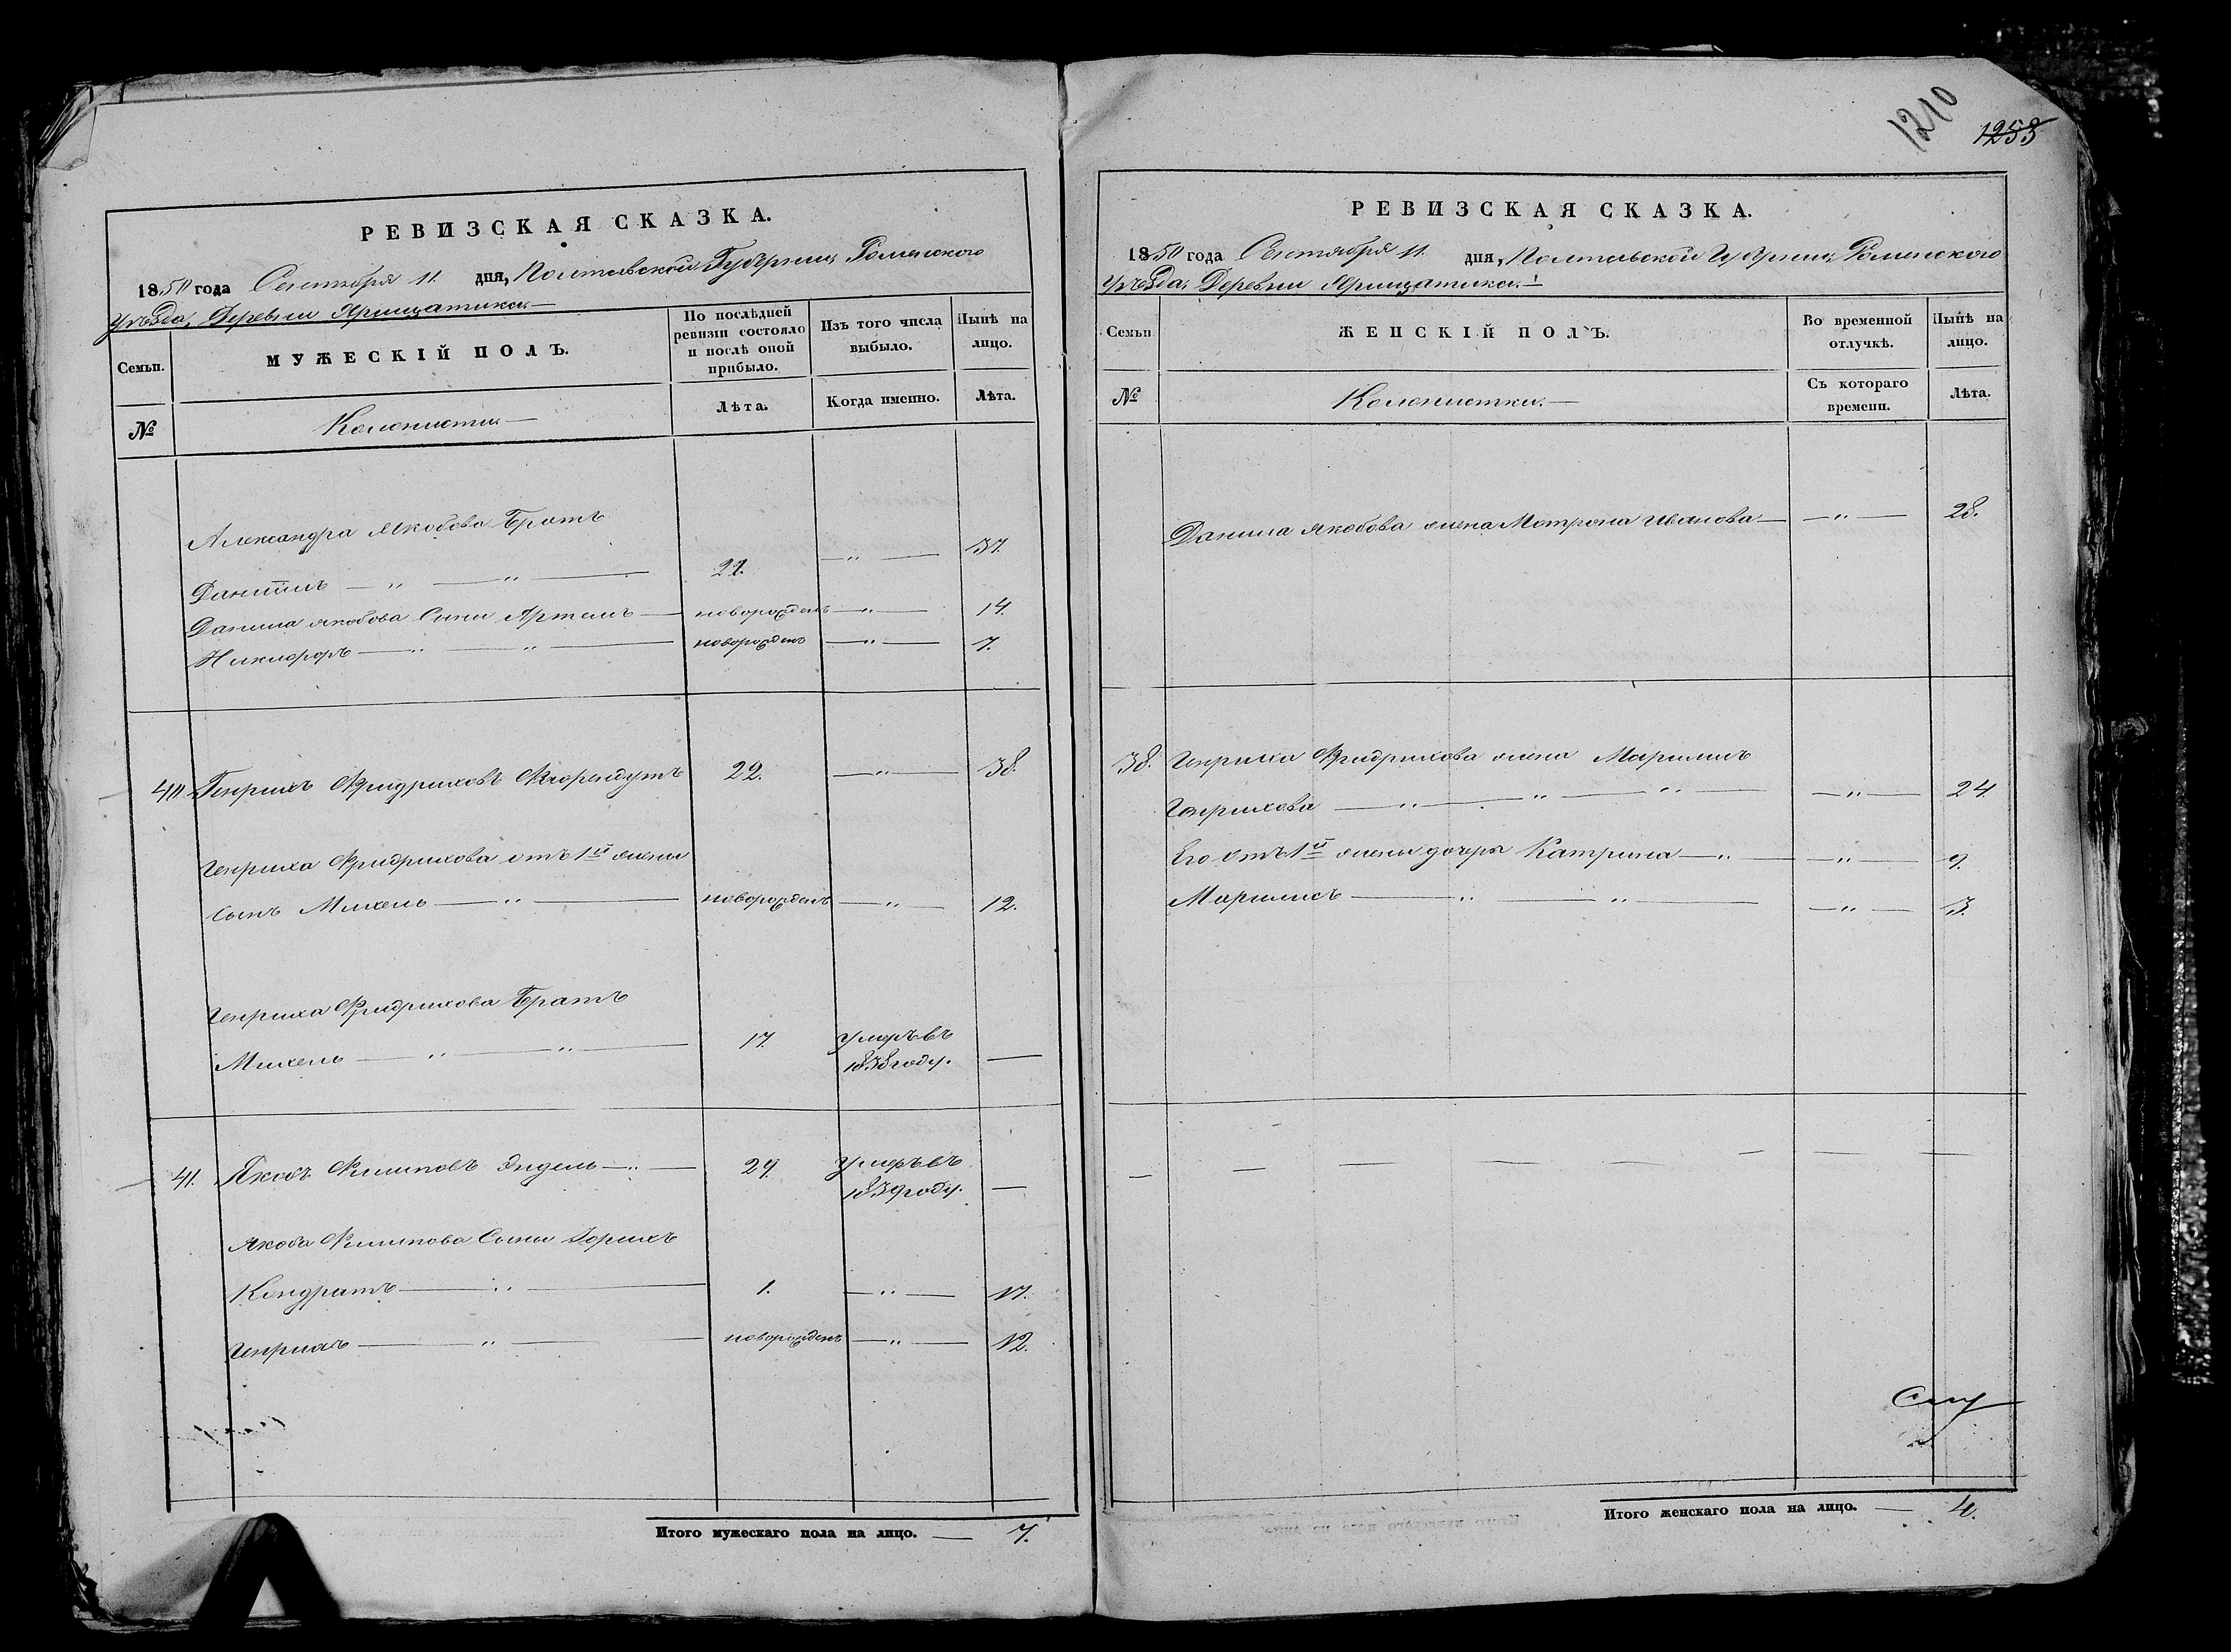 1210
1253
РЕВИЗСКАЯ СКАЗКА.
1850 года Сентября 11. дня, Полтавской Губернии, Роменского
Уѣзда, Деревни
Семьи.
МУЖЕСКІЙ ПОЛЪ.
По послѣдней ревизіи состояло и послѣ оной прибыло.
Изъ того числа выбыло.
Нынѣ на лицо.
№
Колонисты.
Лѣта.
Когда именно.
Лѣта.
Александра Якобова Братъ
Даніилъ — „ — „ — 22. — „ — 37.
Данила Якобова Сыны Артемъ — новорожденъ — „ — 14.
Никифоръ — „ — „ — новорожденъ — „ — 7.
40. Генрихъ Фридриховъ 22. — „ — 38.
Генриха Фридрихова отъ 1й жены
Сынъ Михель — „ — новорожденъ — „ — 12.
Генриха Фридрихова Братъ
Михель — „ — „ — 17. Умеръ въ
1838 году. —
41. Якобъ Филиповъ Эндель — „ — 29. Умеръ въ
1839 году. —
Якова Филипова Сыны
Кондратъ — „ — 1. — „ — 17.
Генрихъ — „ — новорожденъ — „ — 12.
Итого мужескаго пола на лицо. — 7.
РЕВИЗСКАЯ СКАЗКА.
1850 года Сентября 11. дня, Полтавской Губерніи, Роменского
Уѣзда, Деревни
Семьи
ЖЕНСКІЙ ПОЛЪ.
Во временной отлучкѣ.
Нынѣ на лицо.
№
Колонистки. —
Съ котораго времени.
Лѣта.
Данила Якобова жена Мотрона Иванова — — „ — 28.
38. Генриха Фридрихова жена
Генрихова — „ — „ — „ — — „ — 24.
Его отъ 1й жены дочери Катрина — „ — — „ — 9.
— „ — „ — — „ — 3.
— — — — — — — —
Итого женскаго пола на лицо. — 4.